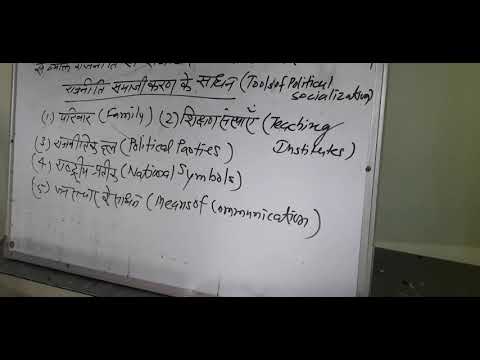 राजनीति समाजीकरण के साधन (Tools of Political
socialization)
(1) परिवार (Family) (2) शिक्षण संस्थाएँ (Teaching
Institutes)
(3) राजनीतिक दल (Political Parties)
(4) राष्ट्रीय प्रतीक (National Symbols)
(5) जन संचार के साधन (Means of Communication)